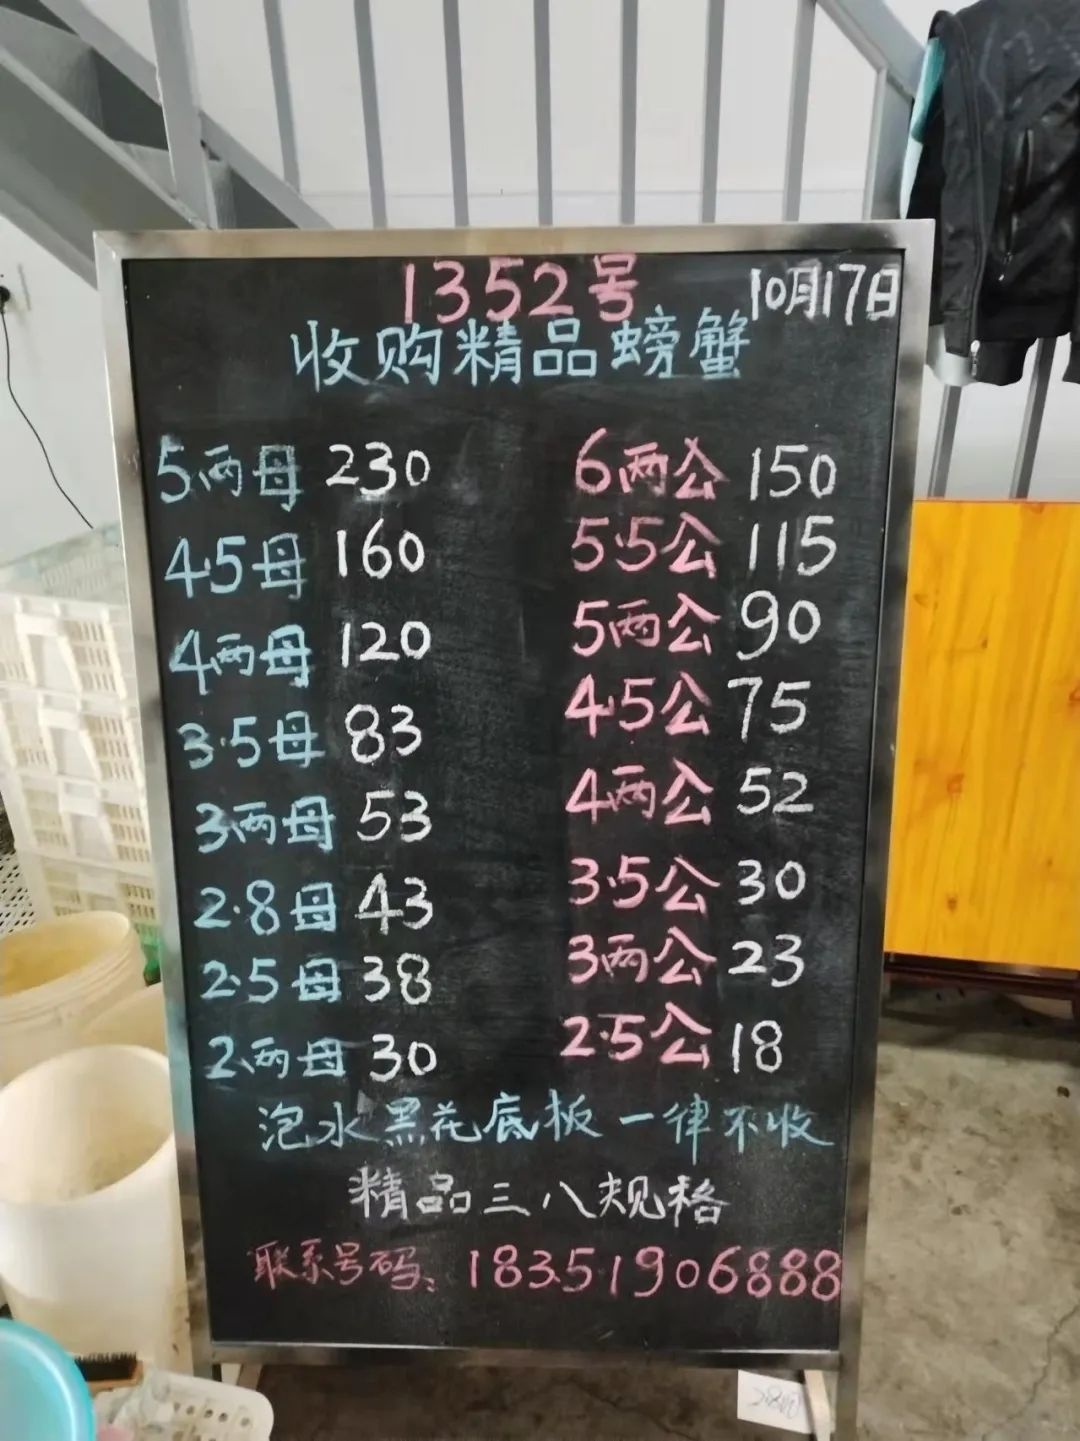 1352号 10月17日
收购精品螃蟹
5两母 230 6两公 150
4.5母 160 5.5公 115
4两母 120 5两公 90
3.5母 83 4.5公 75
3两母 53 4两公 52
2.8母 43 3.5公 30
2.5母 38 3两公 23
2两母 30 2.5公 18
泡水黑花底板一律不收
精品三八规格
联系号码：18351906888